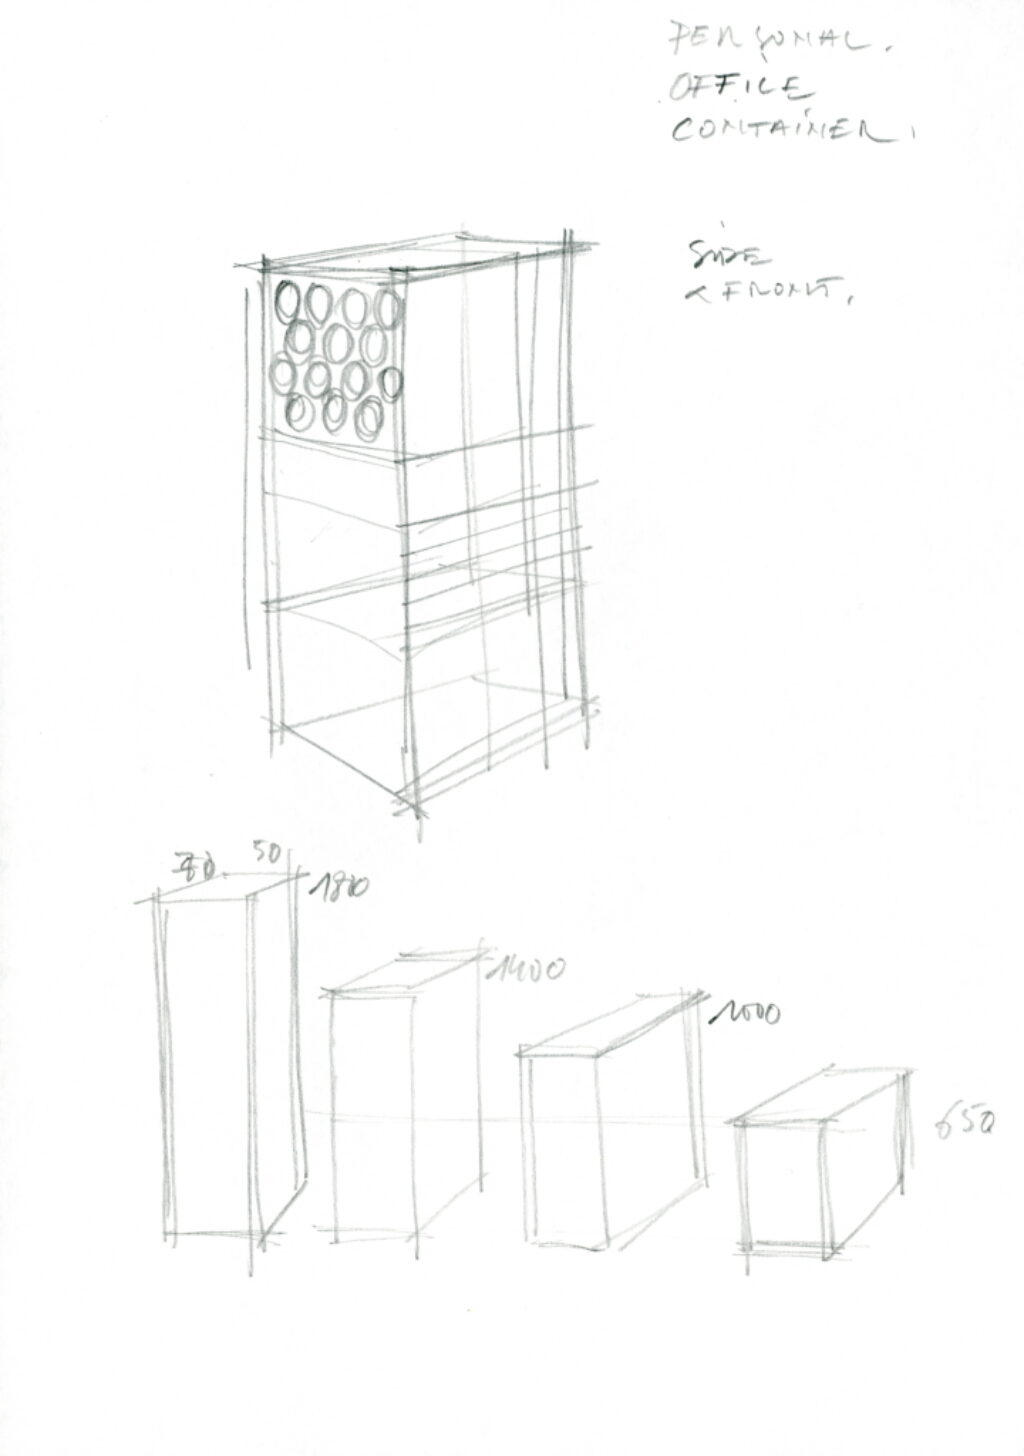 PERSONAL.
OFFICE
CONTAINER.
SIDE
& FRONT.
50
1800
1400
1000
650